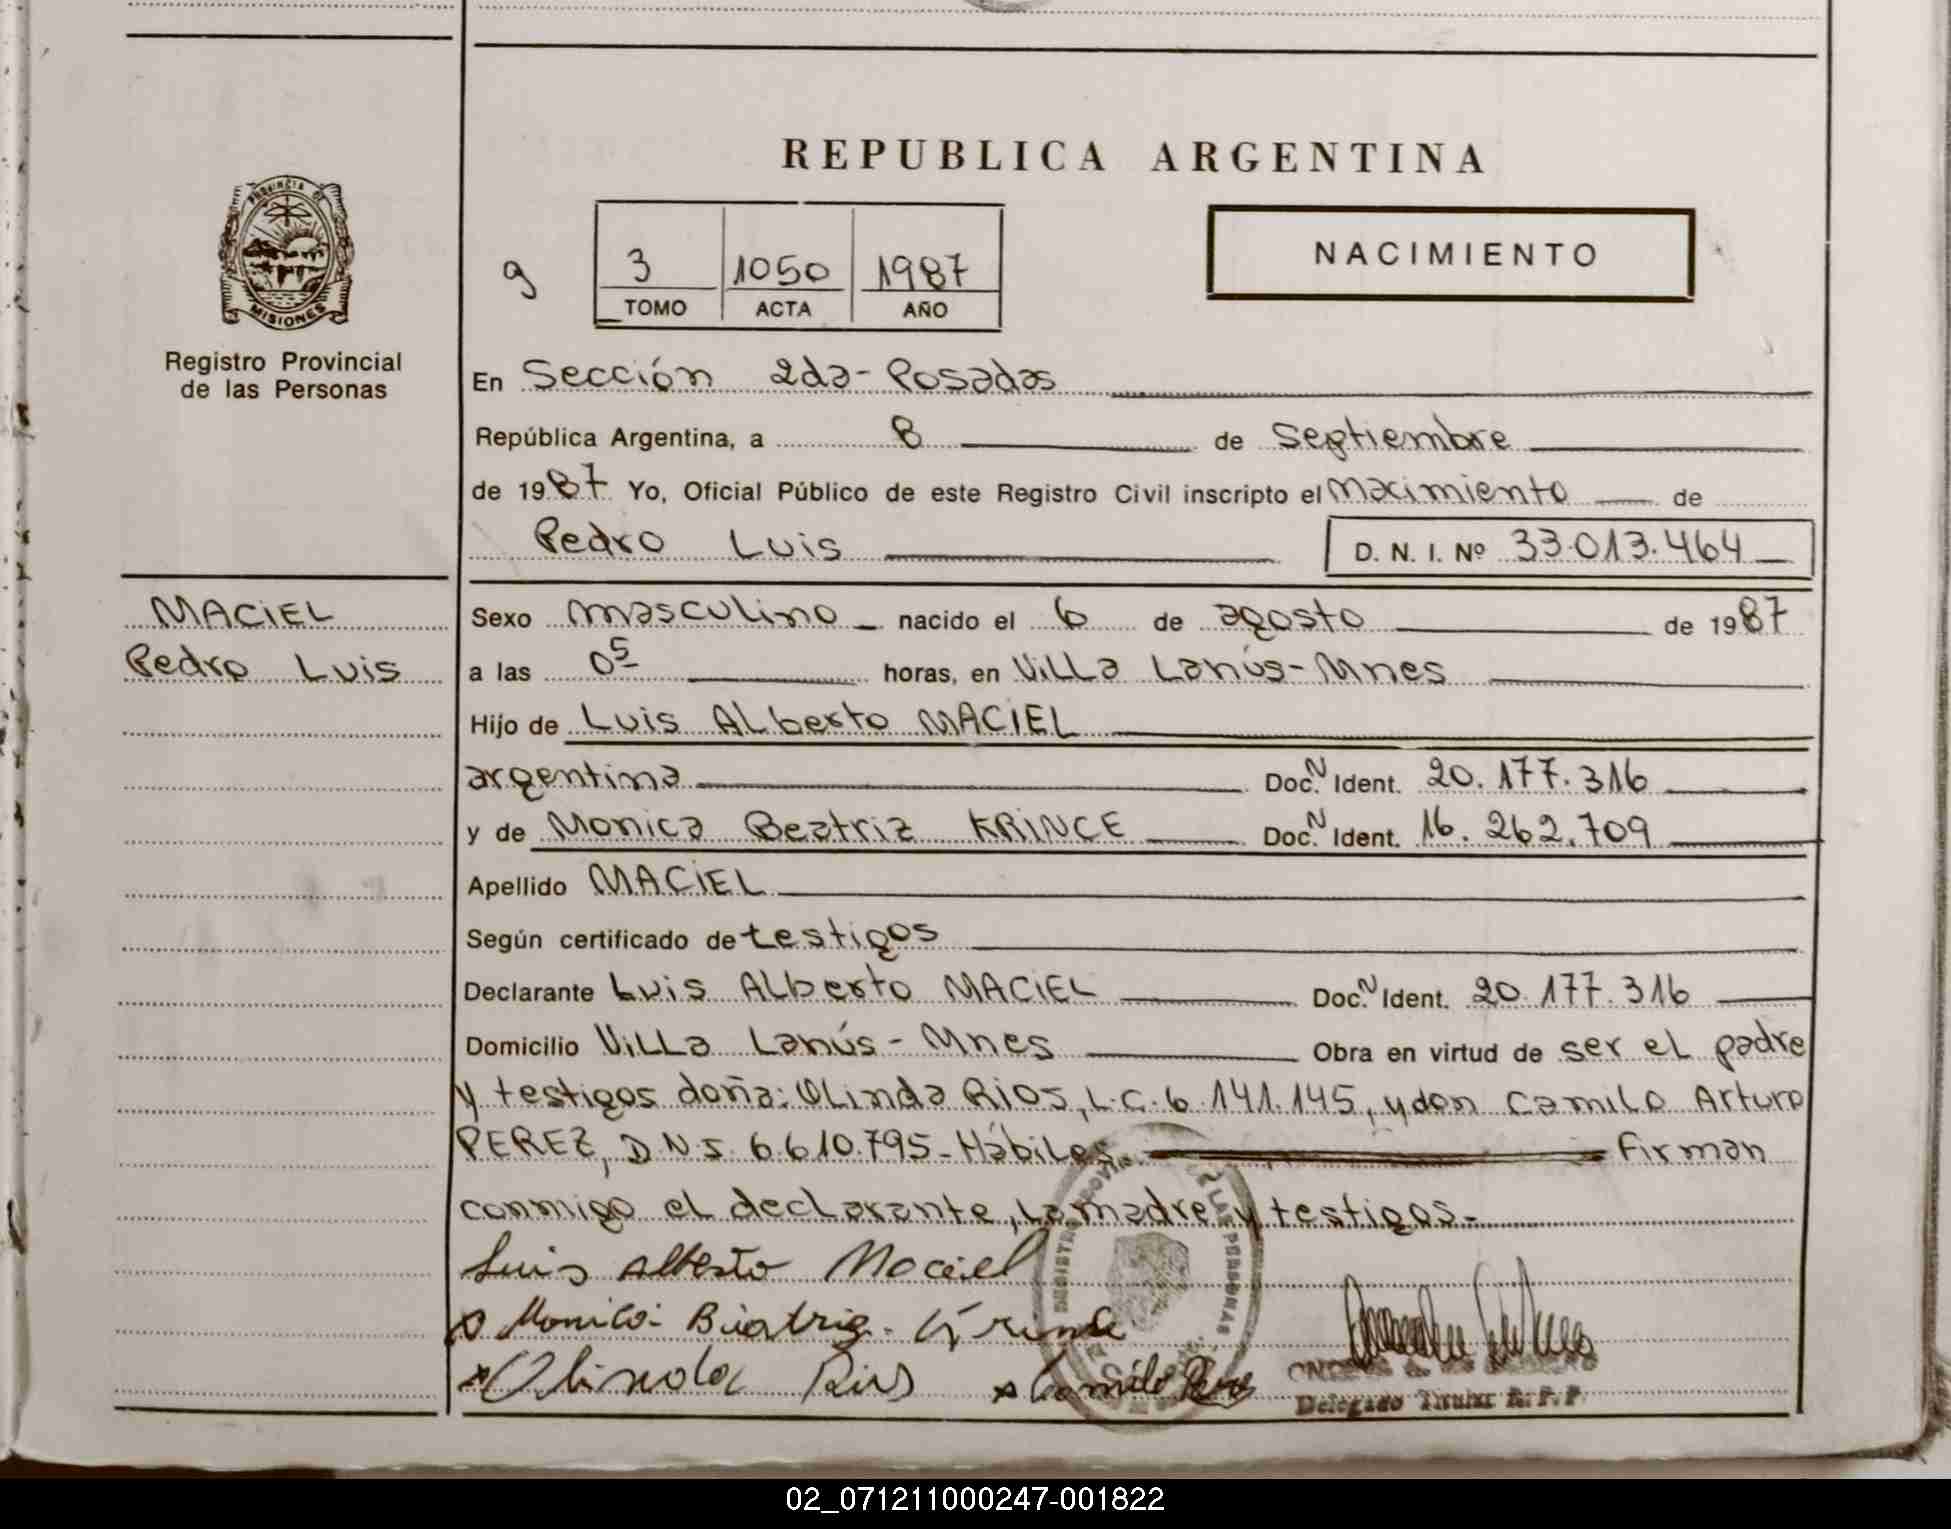 REPUBLICA ARGENTINA
PROVINCIA DE
MISIONES
Registro Provincial
de las Personas
9
3 1050 1987
TOMO ACTA AÑO
NACIMIENTO
En Sección 2da- Posadas
República Argentina, a 8 de Septiembre
de 1987 Yo, Oficial Público de este Registro Civil inscripto el Nacimiento de
Pedro Luis D. N. I. Nº 33.013.464
MACIEL
Pedro Luis
Sexo masculino nacido el 6 de agosto de 1987
a las 05 horas, en Villa Lanús-Mnes
Hijo de Luis Alberto MACIEL
argentina Doc. N Ident. 20.177.316
y de Monica Beatriz KRINCE Doc. N Ident. 16.262.709
Apellido MACIEL
Según certificado de testigos
Declarante Luis Alberto MACIEL Doc. N Ident. 20.177.316
Domicilio Villa Lanús - Mnes Obra en virtud de ser el padre
y testigos doña: Olinda Rios, L.C. 6.141.145, y don Camilo Arturo
PEREZ, D.N.I. 6.610.795- Hábiles Firman
conmigo el declarante, la madre y testigos.-
Luis Alberto Maciel
Monica Biatriz Krince
Olinda Rios Camilo Perez
LAS PERSONAS
Delegado Titular R. P. P.
02_071211000247-001822